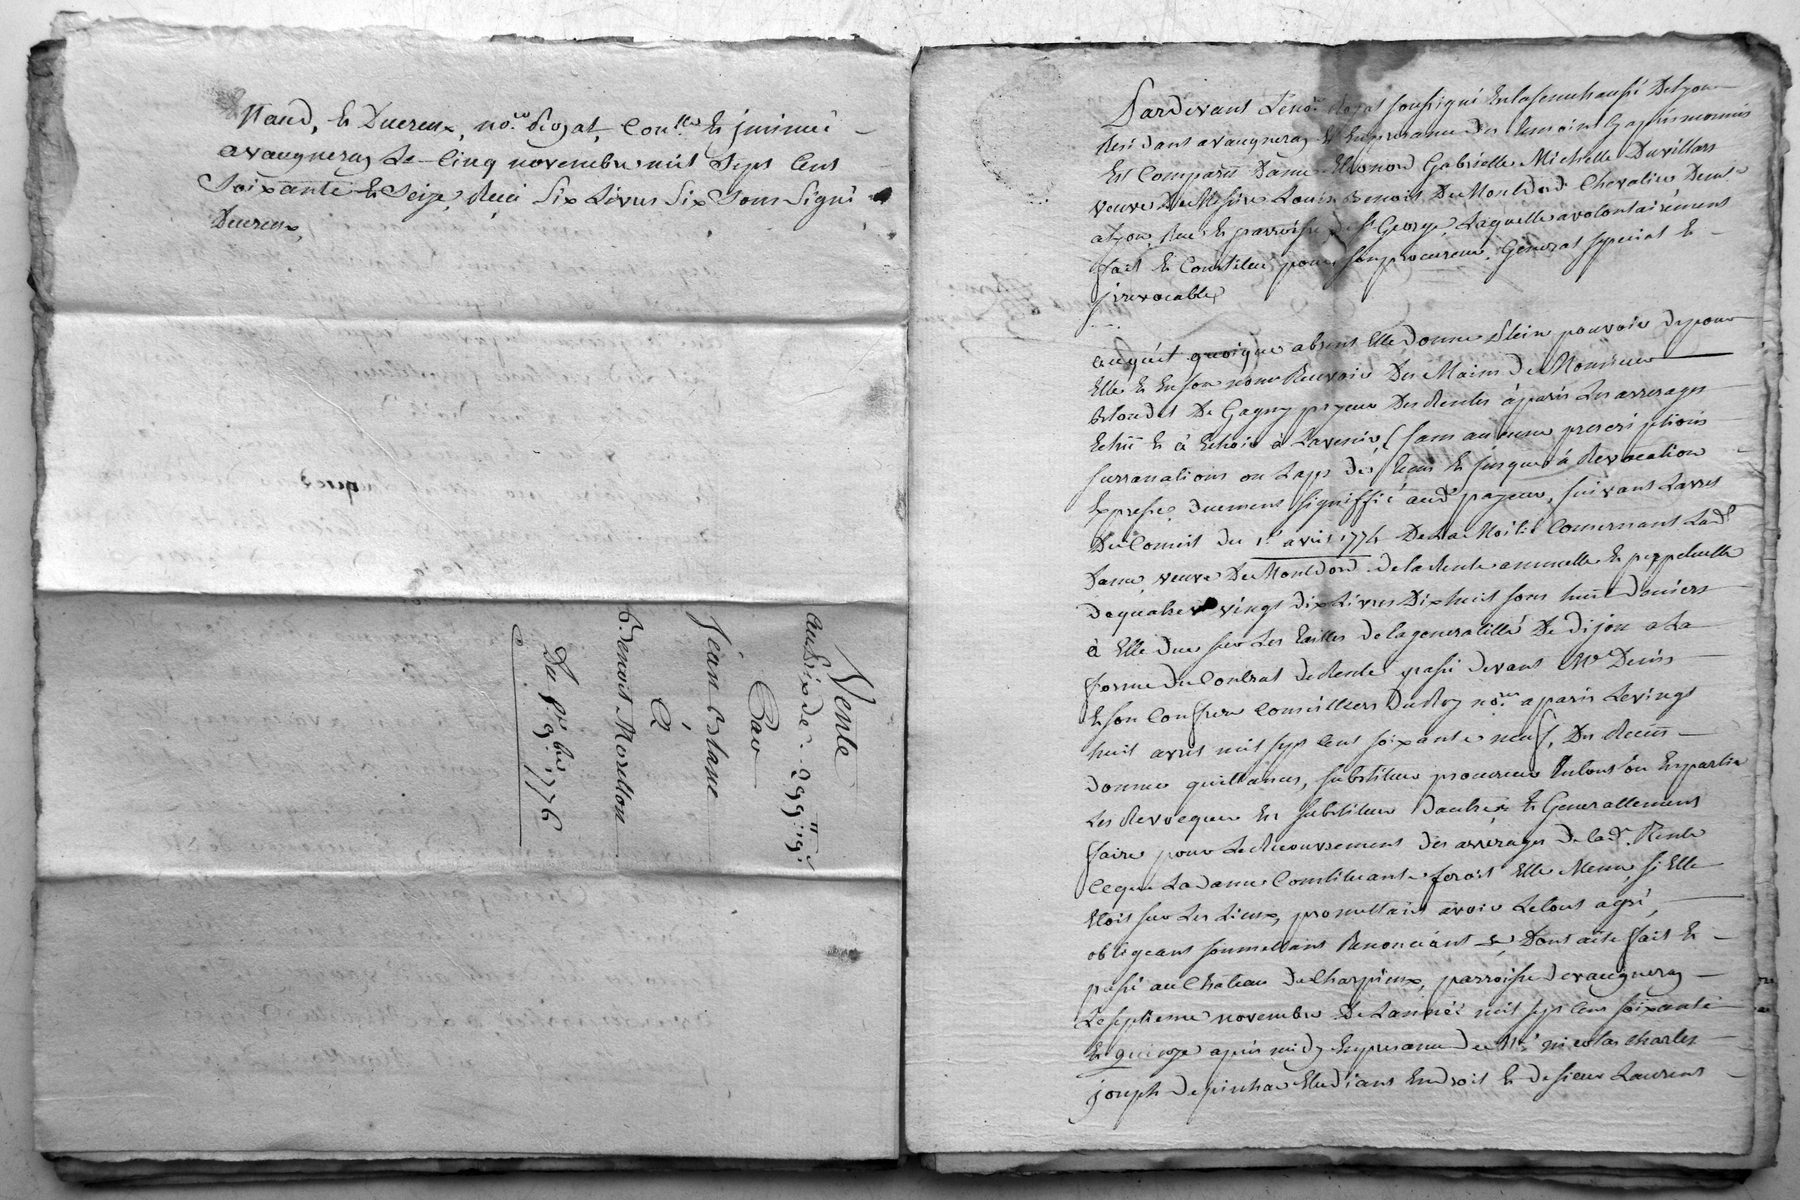 Nand, et Ducreux, no.re Royal, Con.lle Et jnsinué
a vaugneray Le Cinq novembre mil Sept Cent
Soixante Et Seize, Reçu Six Livres Six Sous Signé
Ducreux,
quod
Vente
au Prix de 299ll 19s
Par
Jean Blanc
A
Benoit Morellon
Du pr 9bre 1776
Pardevant Le no.re Royal soussigné En la senechaussé De Lyon
Residant a vaugneray Et En presence des temoins Cy après nommés
Est Comparüe Dame Eleonord Gabrielle Michelle Duvillars
veuve De Messire Louis Benoit De Montdord Chevalier Demte
a Lyon, Rue Et parroisse de St George, Laquelle a volontairement
fait Et Constitué pour son procureur General special Et
jrrevocable,
auquel quoique absent Elle donne Plein pouvoir de pour
Elle Et En son nom Recevoir Des Mains De Monsieur
Blondel De Gagny payeur Des Rentes à paris Les arrerages
Echûs Et à Echoir à L'avenir, sans aucune prescriptions
surranations ou Laps des tems Et jusques à Revocation
Expresse duement signiffié aud. payeur, suivant L'arret
Du Conseil du 1er avril 1774 De La Moitié Concernant Lad.
Dame veuve De Montdord de la Rente annuelle Et perpetuelle
de quatre vingt dix Livres Dix huit sous huit deniers
à Elle due sur Les tailles de la generallité De Dijon a La
forme du Contrat de Rente passé devant Me Denis
Et son Confrere Conseillers Du Roy no.res a paris Le vingt
huit avril mil sept Cent soixante neuf, Du Recûs
donner quittances, substituer procureur En tout ou En partie
Les Revocquer Et substituer d'autres Et Generallement
faire pour Le Recouvrement des arrerages de lad. Rente
Ce que La dame Constituante feroit Elle Meme, si Elle
Etoit sur Les Lieux, promettant avoir Le tout agré,
obligeant soumettant Renonceant &c Dont acte fait Et
passé au Chateau De Charpieux, parroisse de vaugneray
Le septieme novembre De L'année mil sept Cent soixante
Et quinze après midy En presence de Mre nicolas charles
joseph Etudiant En droit Et de sieur Laurent